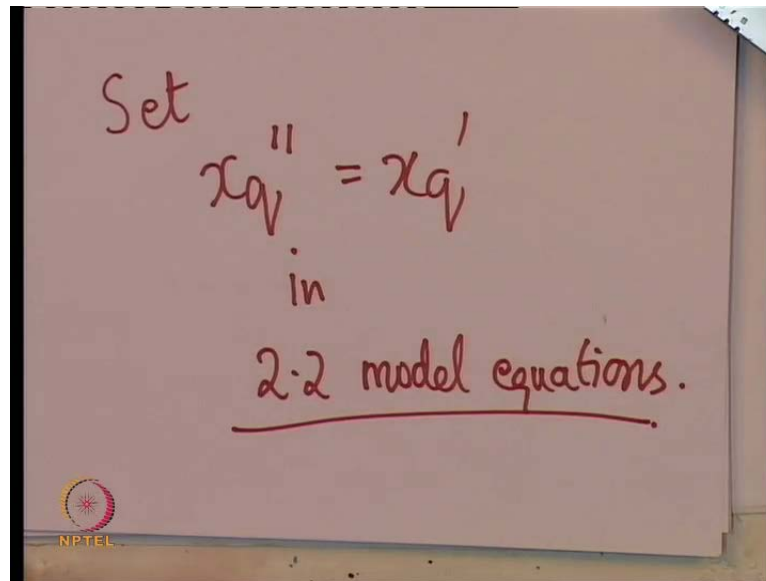 Set
xq'' = xq'
in
2.2 model equations.
NPTEL